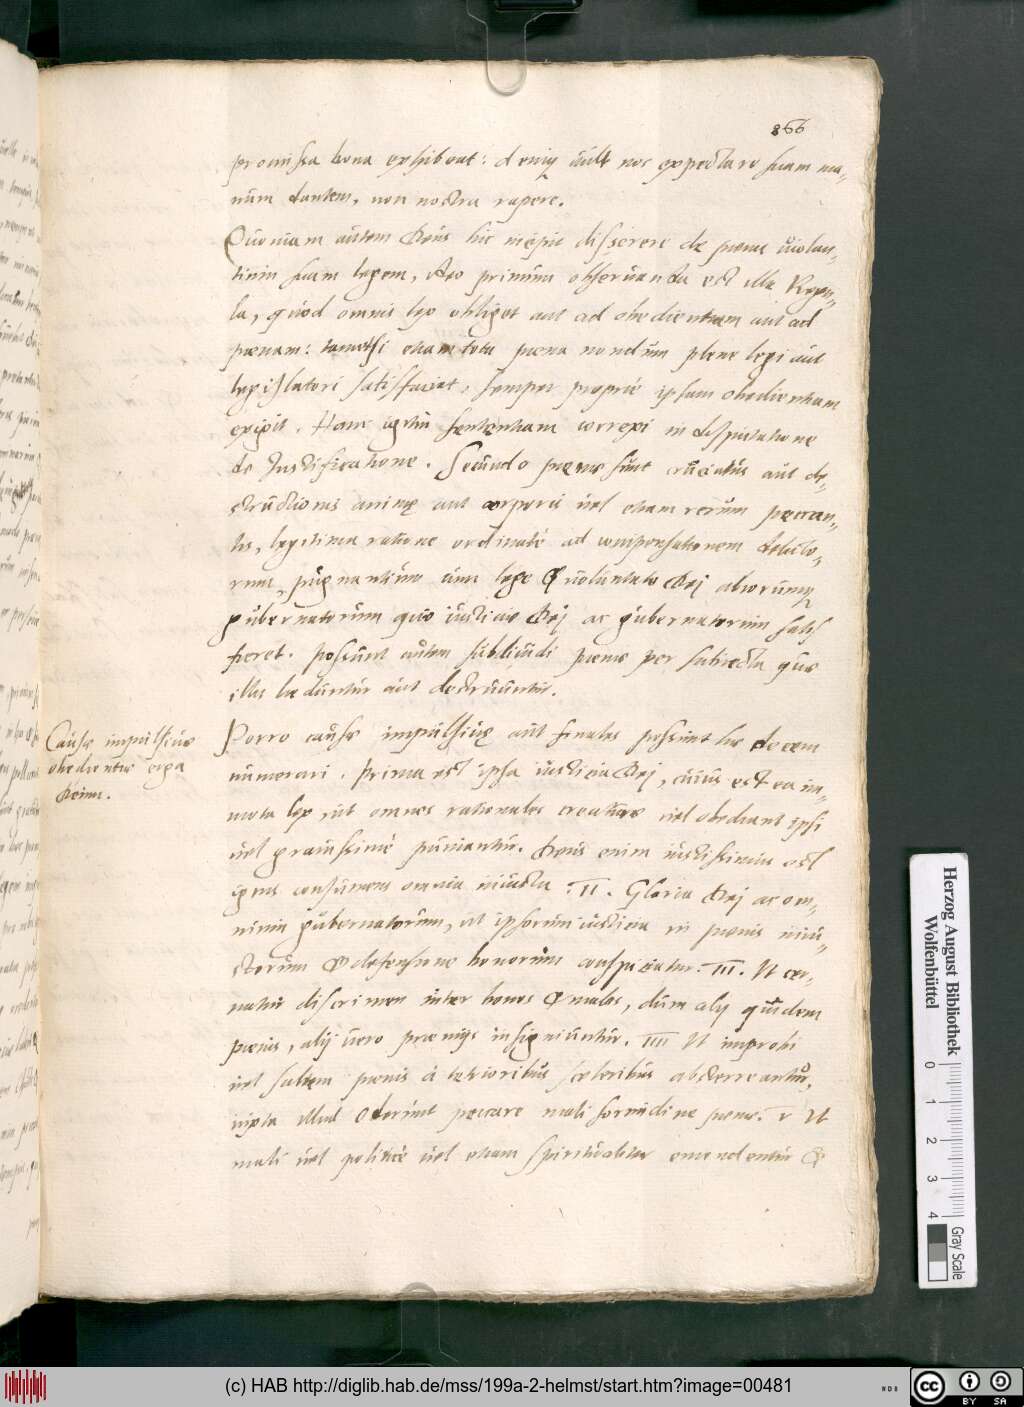 866
promissa bona exhibeat: deniq vult nos expectare suam ma„
num dantem, non nostra rapere.
Quoniam autem Deus hic incipit disserere de poena violan„
tium suam legem, Ideo primum observanda est illa Regu„
la, quod omnis lex obliget aut ad obedientiam aut ad
poenam: tametsi etiam tota poena nondum plene legi aut
legislatori satisfaciat, semper proprie ipsam obedientiam
exigit. Hanc sententiam correxi in disputatione
de Iustificatione. Secundo poenae sunt cruciatus aut de„
structiones animę aut corporis vel etiam rerum peccan„
tis, legitima ratione ordinatę ad compensationem debito„
rum, pugnantium cum lege & voluntate Dej aliorumq
gubernatorum quo iusticiae Dej ac gubernatorum satis
fieret. Possunt autem subdividi poenae per subiecta quae
illis laeduntur aut destruuntur.
Causae impulsivae
obedientiae erga
Deum.
Porro causae impulsivę aut finales possunt hic decem
numerari. Prima est ipsa iusticia Dej, cuius est ea im„
mota lex, ut omnes rationales creaturae vel obediant ipsi
vel gravissimè puniantur. Deus enim iustissimus est
ignis consumens omnia iniusta. II. Gloria Dej ac om„
nium gubernatorum, ut ipsorum iusticia in poenis iniu„
storum & defensione bonorum conspiciatur. III. Ut cer„
natur discrimen inter bonos & malos, dum alij quidem
poenis, alij vero praemijs insigniuntur. IIII Ut improbi
vel saltem poenis à tetrioribus sceleribus absterreantur,
iuxta illud Oderunt peccare mali formidine poenae. V Ut
mali vel politicè vel etiam spiritualiter emendentur &
Herzog August Bibliothek
Wolfenbüttel
0 1 2 3 4
Gray Scale
(c) HAB http://diglib.hab.de/mss/199a-2-helmst/start.htm?image=00481
cc BY SA